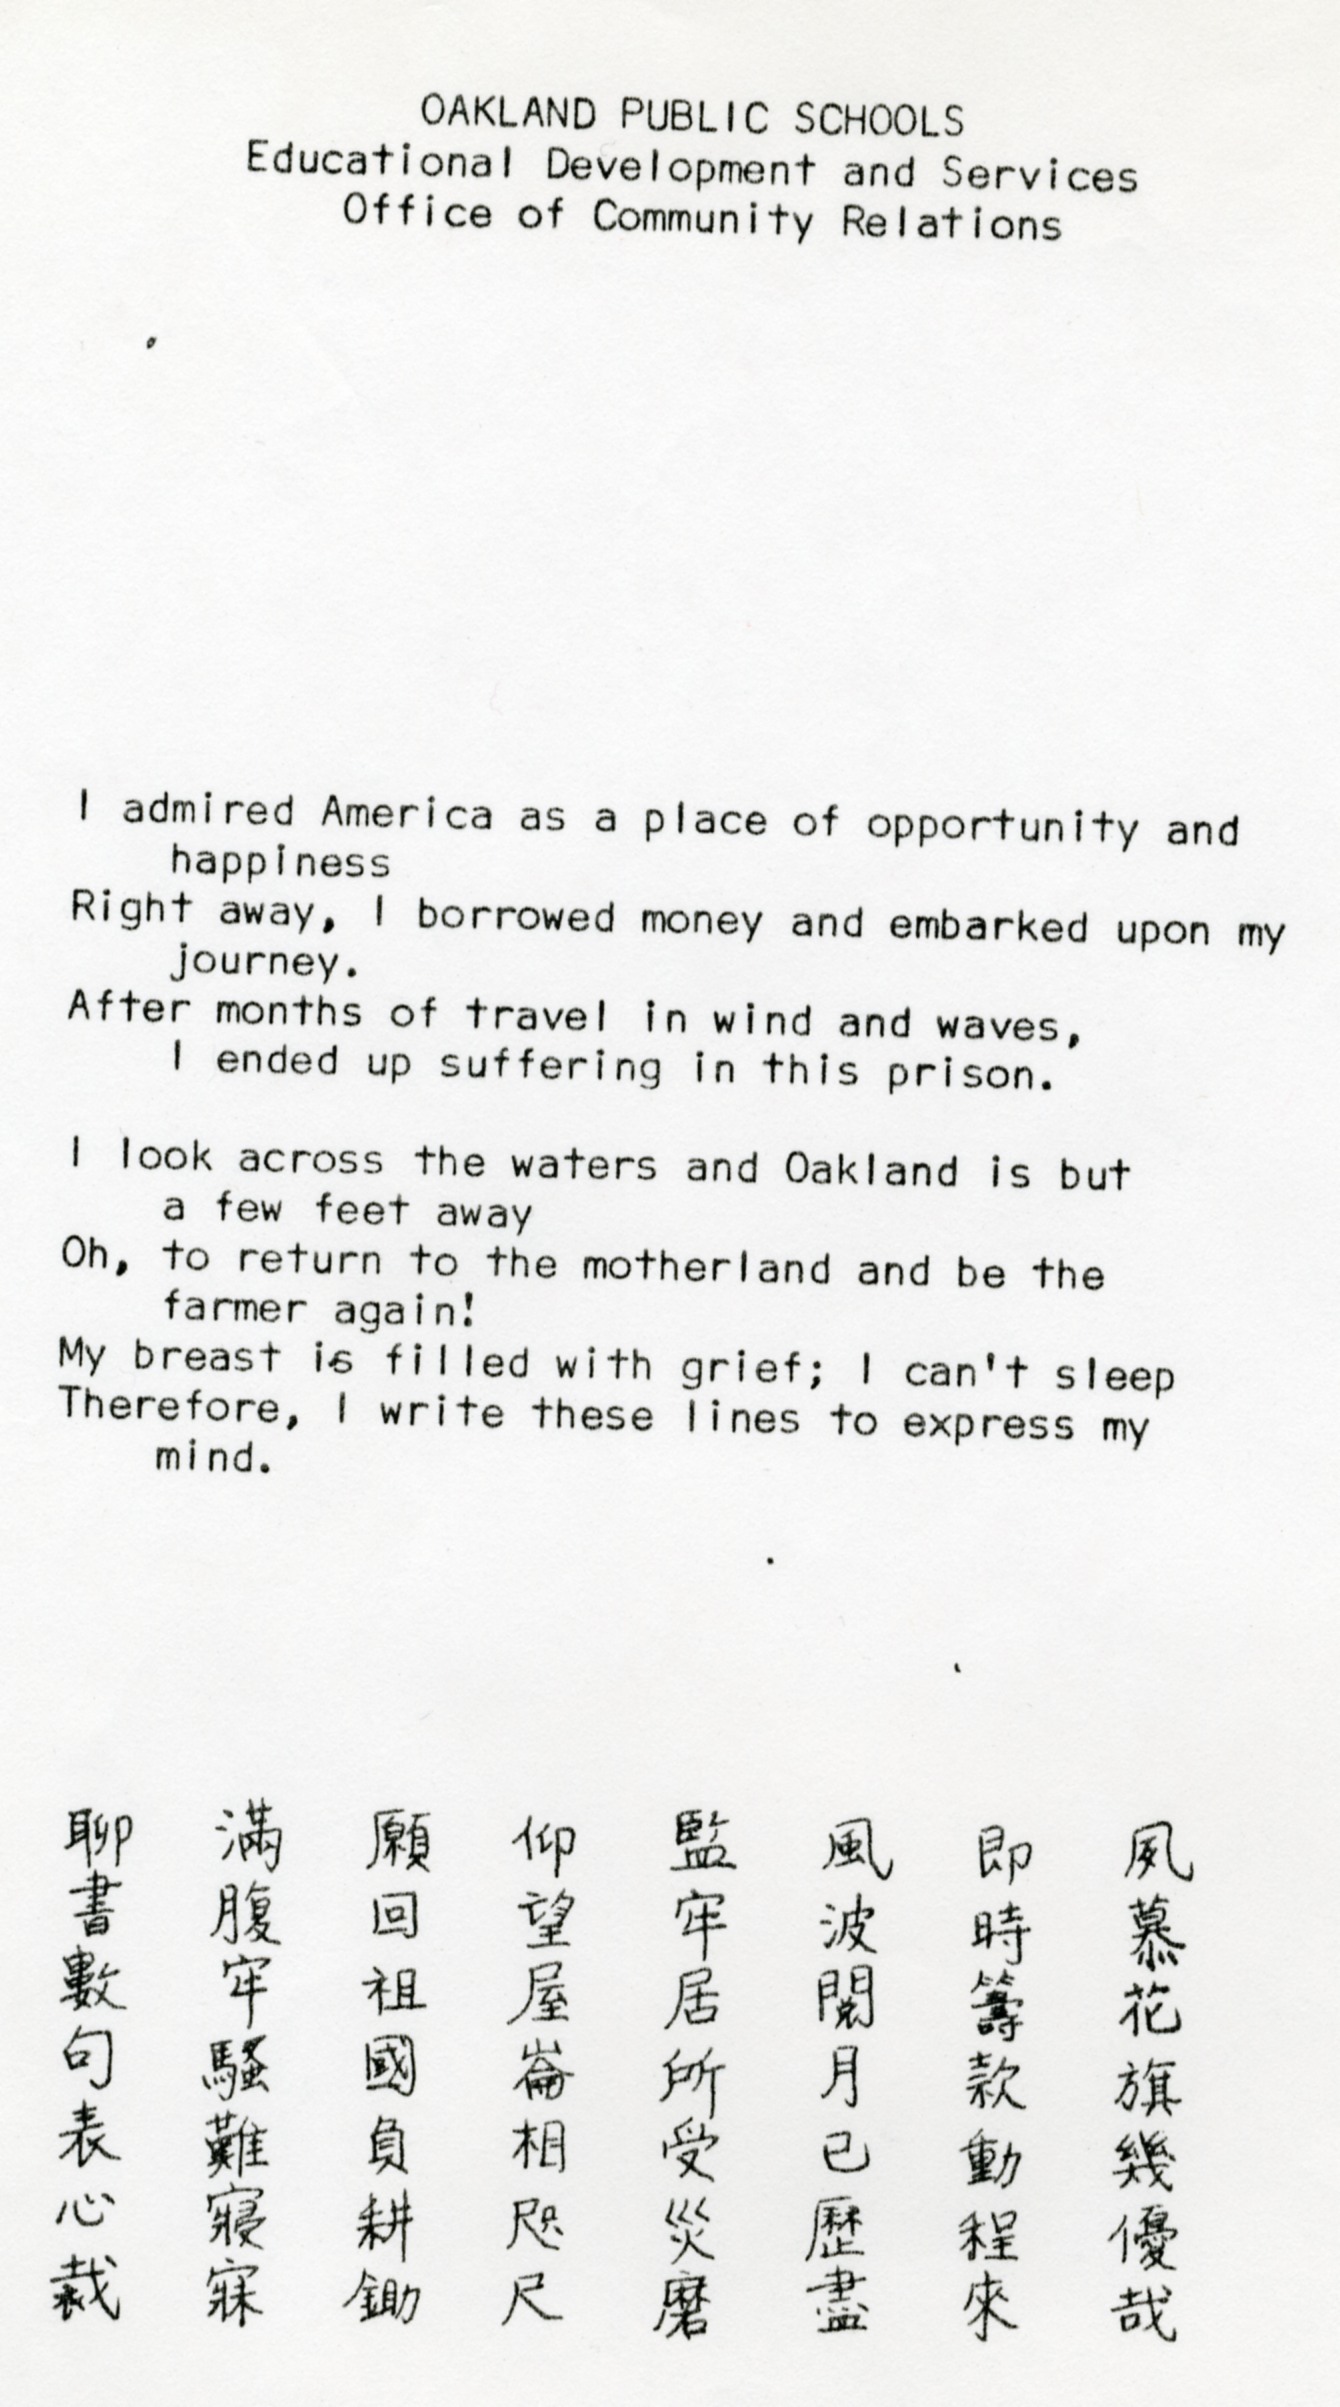 OAKLAND PUBLIC SCHOOLS
Educational Development and Services
Office of Community Relations
I admired America as a place of opportunity and
happiness
Right away, I borrowed money and embarked upon my
journey.
After months of travel in wind and waves,
I ended up suffering in this prison.
I look across the waters and Oakland is but
a few feet away
Oh, to return to the motherland and be the
farmer again!
My breast is filled with grief; I can't sleep
Therefore, I write these lines to express my
mind.
夙慕花旗幾優哉
即時籌款動程來
風波閱月已歷盡
監牢居所受災磨
仰望屋崙相咫尺
願回祖國負耕鋤
滿腹牢騷難寢寐
聊書數句表心裁